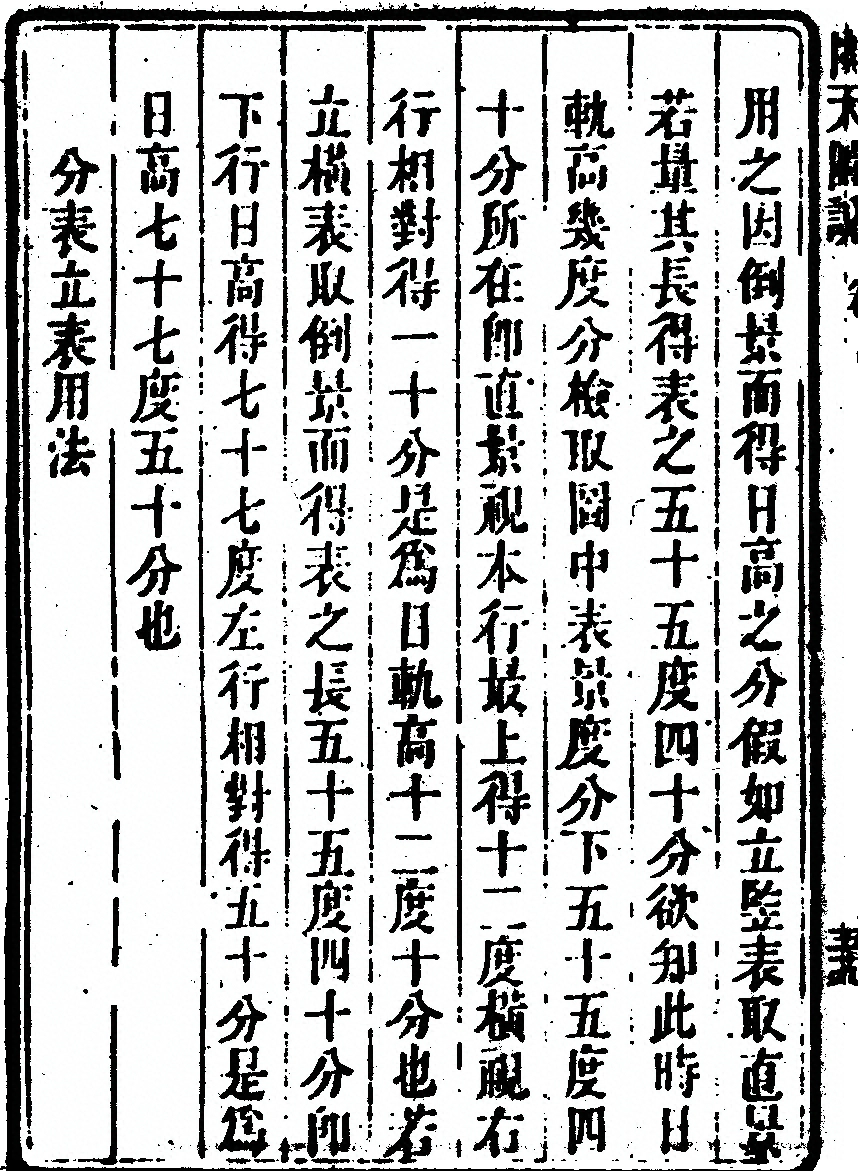 用之因倒景而得日高之分假如立監表取直景
若量其長得表之五十五度四十分欲知此時日
軌高幾度分檢取圖中表景度分下五十五度四
十分所在即直景視本行最上得十二度橫視右
行相對得一十分是為日軌高十二度十分也若
立橫表取倒景而得表之長五十五度四十分即
下行日高得七十七度左行相對得五十分是為
日高七十七度五十分也
分表立表用法